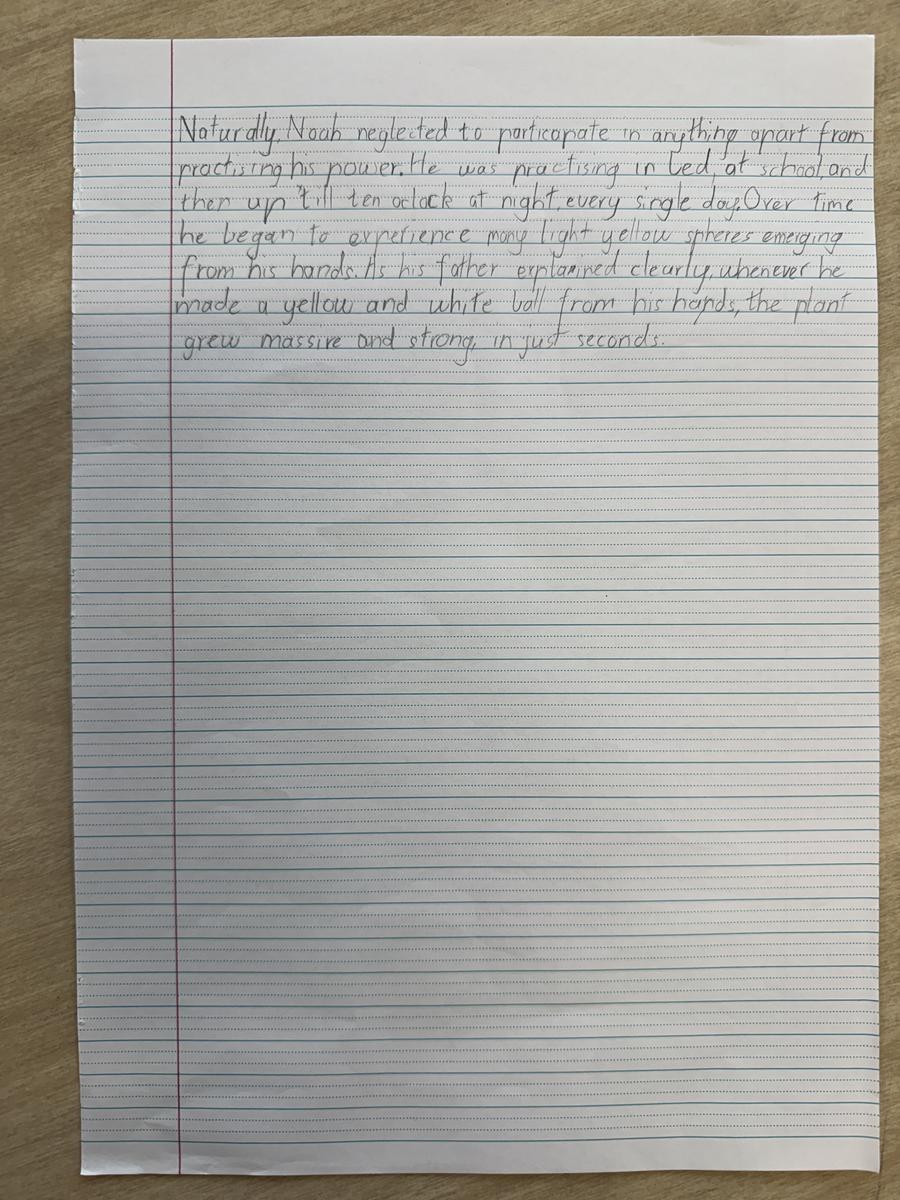 Naturally, Noah neglected to participate in anything apart from
practising his power. He was practising in bed, at school, and
then up 'till ten oclock at night, every single day. Over time
he began to experience many light yellow spheres emerging
from his hands. As his father explained clearly, whenever he
made a yellow and white ball from his hands, the plant
grew massive and strong, in just seconds.